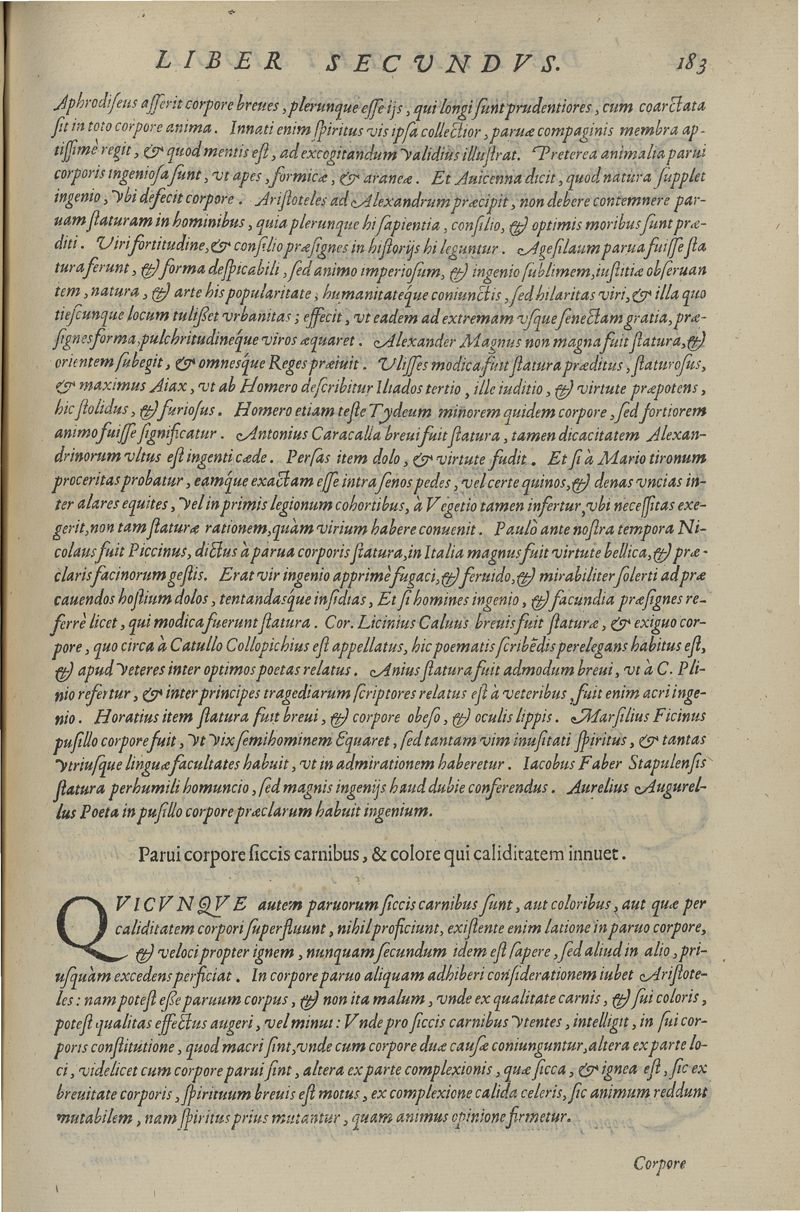 LIBER SECVNDVS. 183
Aphrodiſeus aſſerit corpore breues, plerunque eſſe ijs, qui longi ſunt prudentiores, cum coarctata
ſit in toto corpore anima. Innati enim ſpiritus vis ipſa collectior, paruæ compaginis membra ap-
tiſſimè regit, & quod mentis eſt, ad excogitandum validius illuſtrat. Preterea animalia parui
corporis ingenioſa ſunt, vt apes, formicæ, & araneæ. Et Auicenna dicit, quod natura ſupplet
ingenio, vbi defecit corpore. Ariſtoteles ad Alexandrum præcipit, non debere contemnere par-
uam ſtaturam in hominibus, quia plerunque hi ſapientia, conſilio, & optimis moribus ſunt præ-
diti. Viri fortitudine, & conſilio præſignes in hiſtorijs hi leguntur. Ageſilaum parua fuiſſe ſta
tura ferunt, & forma deſpicabili, ſed animo imperioſum, & ingenio ſublimem, iuſtitiæ obſeruan
tem, natura, & arte his popularitate, humanitateque coniunctis, ſed hilaritas viri, & illa quo
tieſcunque locum tuliſſet vrbanitas; effecit, vt eadem ad extremam vſque ſenectam gratia, præ-
ſignes forma, pulchritudineq́ue viros æquaret. Alexander Magnus non magna fuit ſtatura, &
orientem ſubegit, & omneſq́ue Reges præiuit. Vliſſes modica fuit ſtatura præditus, ſtaturoſus,
& maximus Aiax, vt ab Homero deſcribitur Iliados tertio, ille iuditio, & virtute præpotens,
hic ſtolidus, & furioſus. Homero etiam teſte Tydeum minorem quidem corpore, ſed fortiorem
animo fuiſſe ſignificatur. Antonius Caracalla breui fuit ſtatura, tamen dicacitatem Alexan-
drinorum vltus eſt ingenti cæde. Perſas item dolo, & virtute fudit. Et ſi à Mario tironum
proceritas probatur, eamq́ue exactam eſſe intra ſenos pedes, vel certe quinos, & denas vncias in-
ter alares equites, vel in primis legionum cohortibus, à Vegetio tamen infertur, vbi neceſſitas exe-
gerit, non tam ſtaturæ rationem, quàm virium habere conuenit. Paulò ante noſtra tempora Ni-
colaus fuit Piccinus, dictus à parua corporis ſtatura, in Italia magnus fuit virtute bellica, & præ-
claris facinorum geſtis. Erat vir ingenio apprimè fugaci, & feruido, & mirabiliter ſolerti ad præ
cauendos hoſtium dolos, tentandaſq́ue inſidias, Et ſi homines ingenio, & facundia præſignes re-
ferrè licet, qui modica fuerunt ſtatura. Cor. Licinius Caluus breuis fuit ſtaturæ, & exiguo cor-
pore, quo circa à Catullo Collopichius eſt appellatus, hic poematis ſcribẽdis perelegans habitus eſt,
& apud veteres inter optimos poetas relatus. Anius ſtatura fuit admodum breui, vt à C. Pli-
nio refertur, & inter principes tragediarum ſcriptores relatus eſt à veteribus, fuit enim acri inge-
nio. Horatius item ſtatura fuit breui, & corpore obeſo, & oculis lippis. Marſilius Ficinus
puſillo corpore fuit, vt vix ſemihominem æquaret, ſed tantam vim inuſitati ſpiritus, & tantas
vtriuſque linguæ facultates habuit, vt in admirationem haberetur. Iacobus Faber Stapulenſis
ſtatura perhumili homuncio, ſed magnis ingenijs haud dubie conferendus. Aurelius Augurel-
lus Poeta in puſillo corpore præclarum habuit ingenium.
Parui corpore ſiccis carnibus, & colore qui caliditatem innuet.
QVICVNQVE autem paruorum ſiccis carnibus ſunt, aut coloribus, aut quæ per
caliditatem corpori ſuperfluunt, nihil proficiunt, exiſtente enim latione in paruo corpore,
& veloci propter ignem, nunquam ſecundum idem eſt ſapere, ſed aliud in alio, pri-
uſquàm excedens perficiat. In corpore paruo aliquam adhiberi conſiderationem iubet Ariſtote-
les: nam poteſt eſſe paruum corpus, & non ita malum, vnde ex qualitate carnis, & ſui coloris,
poteſt qualitas effectus augeri, vel minui: Vnde pro ſiccis carnibus vtentes, intelligit, in ſui cor-
poris conſtitutione, quod macri ſint, vnde cum corpore duæ cauſæ coniunguntur, altera ex parte lo-
ci, videlicet cum corpore parui ſint, altera ex parte complexionis, quæ ſicca, & ignea eſt, ſic ex
breuitate corporis, ſpirituum breuis eſt motus, ex complexione calida celeris, ſic animum reddunt
mutabilem, nam ſpiritus prius mutantur, quam animus opinione firmetur.
Corpore